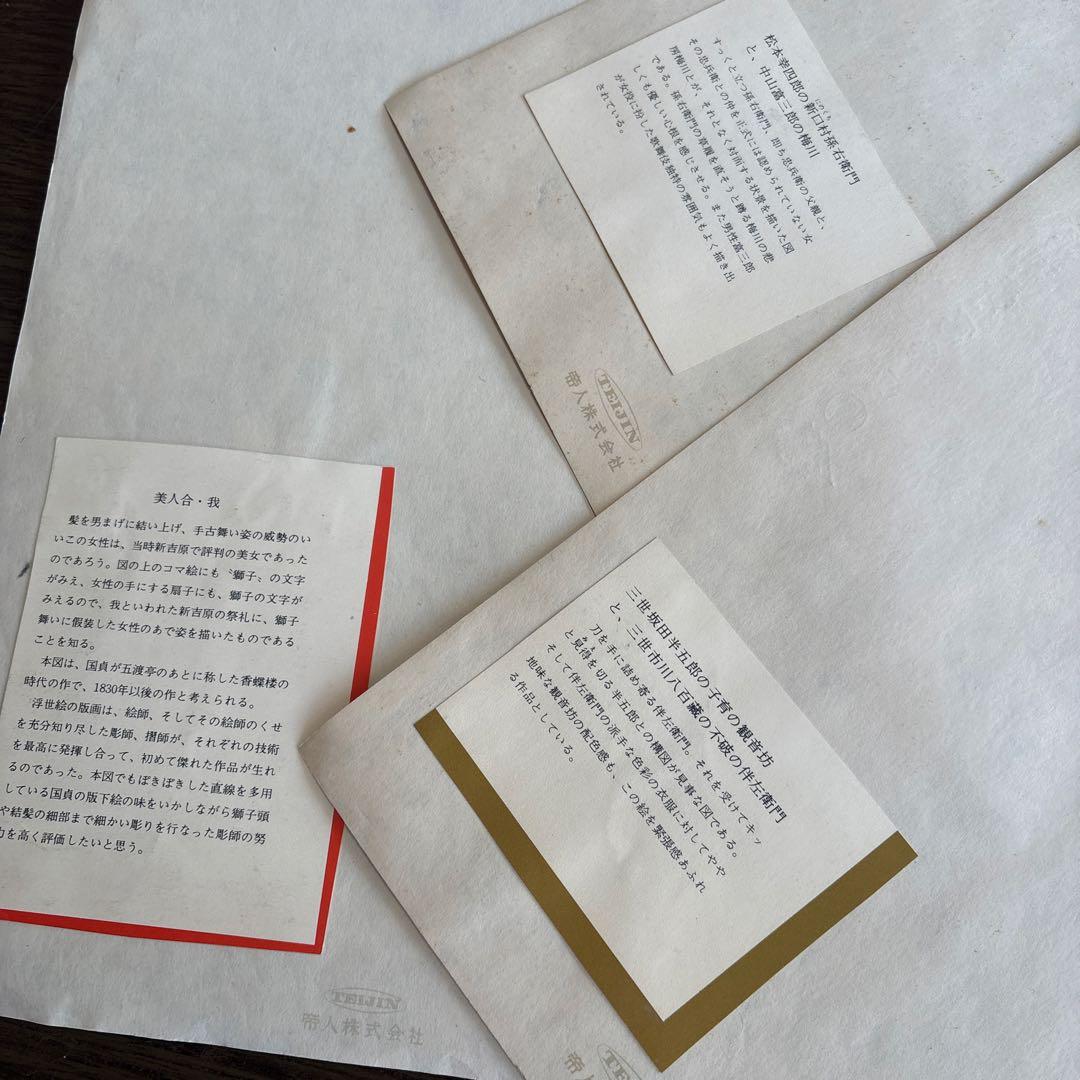 松本幸四郎の新口村孫右衛門
にのくち
と、中山富三郎の梅川
すっくと立つ孫右衛門、即ち忠兵衛の父親と、
その忠兵衛との仲を正式には認められていない女
房梅川とが、それとなく対面する状景を描いた図
である。孫右衛門の草履を直そうと蹲る梅川の悲
しくも優しい心根を感じさせる。また男性富三郎
が女役に扮した歌舞伎独特の雰囲気もよく描き出
されている。
TEIJIN
帝人株式会社
美人合・我
髪を男まげに結い上げ、手古舞い姿の威勢のい
いこの女性は、当時新吉原で評判の美女であった
のであろう。図の上のコマ絵にも〝獅子〟の文字
がみえ、女性の手にする扇子にも、獅子の文字が
みえるので、我といわれた新吉原の祭礼に、獅子
舞いに仮装した女性のあで姿を描いたものである
ことを知る。
本図は、国貞が五渡亭のあとに称した香蝶楼の
時代の作で、1830年以後の作と考えられる。
浮世絵の版画は、絵師、そしてその絵師のくせ
を充分知り尽した彫師、摺師が、それぞれの技術
を最高に発揮し合って、初めて傑れた作品が生れ
るのであった。本図でもぽきぽきした直線を多用
している国貞の版下絵の味をいかしながら獅子頭
や結髪の細部まで細かい彫りを行なった彫師の努
力を高く評価したいと思う。
TEIJIN
帝人株式会社
三世坂田半五郎の子育の観音坊
と、三世市川八百蔵の不破の伴左衛門
刀を手に詰め寄る伴左衛門。それを受けてキッ
と見得を切る半五郎との構図が見事な図である。
みえ
そして伴左衛門の派手な色彩の衣服に対してやや
地味な観音坊の配色感も、この絵を緊張感あふれ
る作品としている。
TEIJIN
帝人